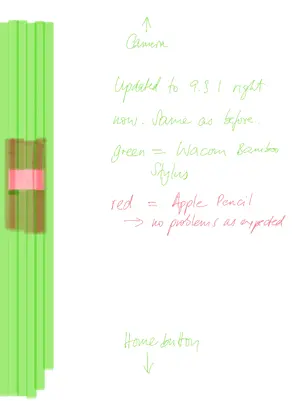 Camera
Updated to 9.3.1 right
now. Same as before.
green = Wacom Bamboo
Stylus
red = Apple Pencil
→ no problems as expected
Home button